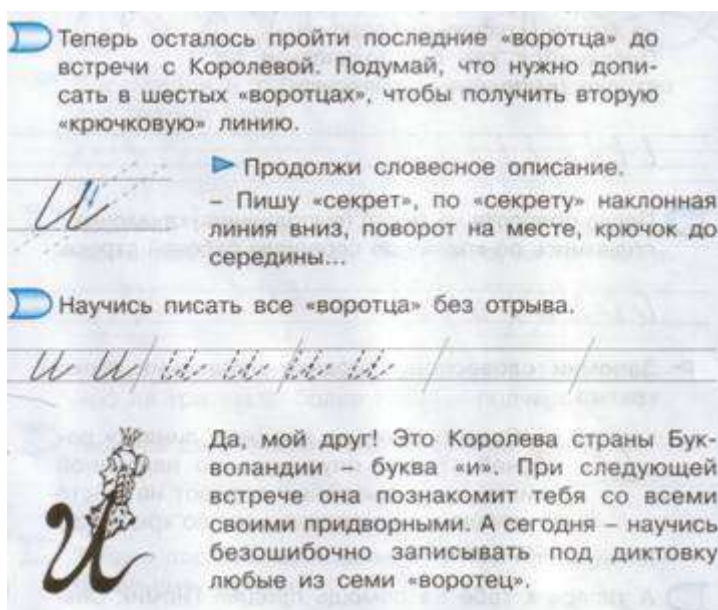 Теперь осталось пройти последние «воротца» до
встречи с Королевой. Подумай, что нужно допи-
сать в шестых «воротцах», чтобы получить вторую
«крючковую» линию.
Продолжи словесное описание.
– Пишу «секрет», по «секрету» наклонная
линия вниз, поворот на месте, крючок до
середины...
Научись писать все «воротца» без отрыва.
и и и и и и
Да, мой друг! Это Королева страны Бук-
воландии – буква «и». При следующей
встрече она познакомит тебя со всеми
своими придворными. А сегодня – научись
безошибочно записывать под диктовку
любые из семи «воротец».